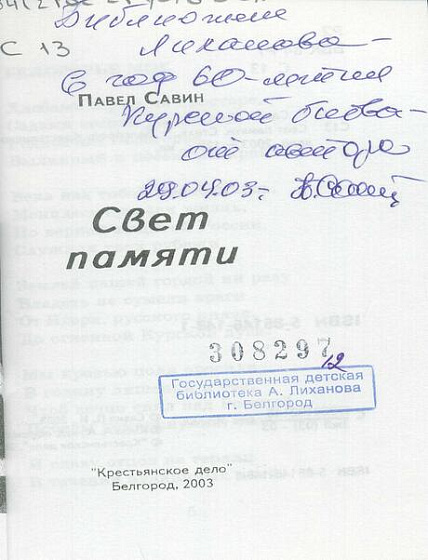 Библиотеке
С 13
Лиханова –
в год 60-летия
ПАВЕЛ САВИН
Курской битвы
от автора
29.04.03г.
Свет
памяти
308297
12
Государственная детская
библиотека А. Лиханова
г. Белгород
"Крестьянское дело"
Белгород, 2003